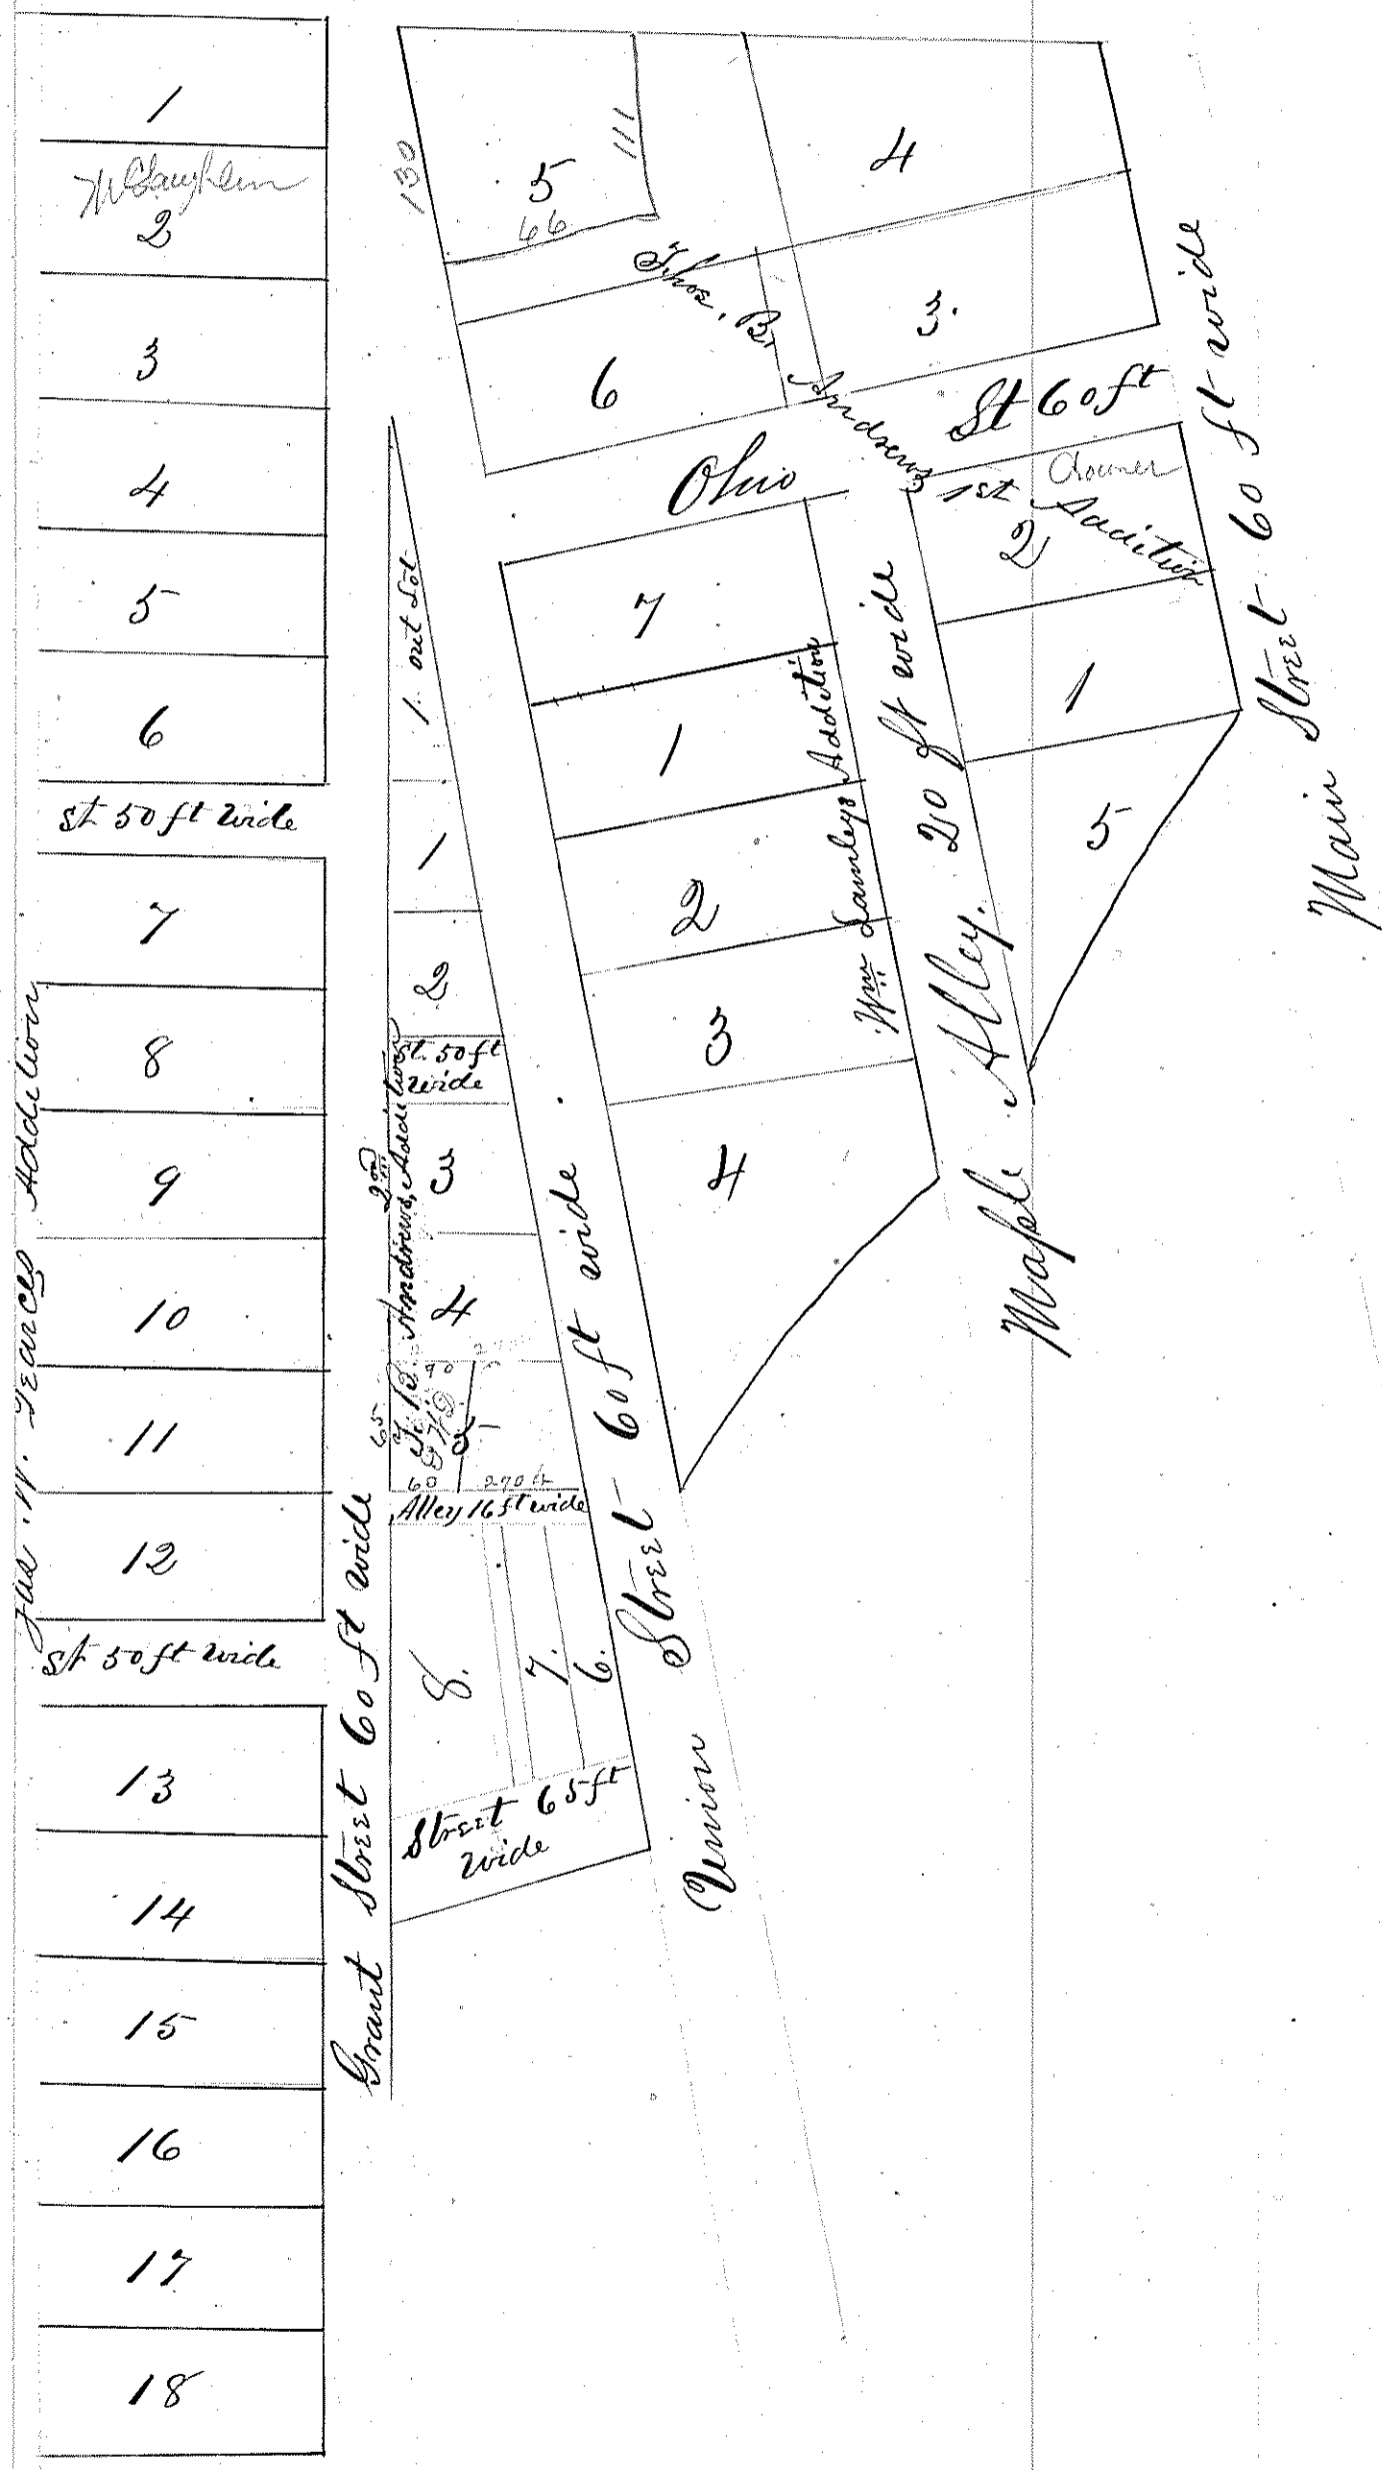 1
McGlaughlin
2
3
4
5
6
st 50 ft wide
7
8
9
10
11
12
st 50 ft wide
13
14
15
16
17
18
Jas. W. Addition
Grant Street 60 ft wide
1. out Lot
1
2
st. 50 ft
wide
3
4
90
5
60
270 ft
65
Alley 16 ft wide
8.
7.
6.
Street 65 ft
wide
T. B. Andrews, Addition
2nd
Union Street 60 ft wide
130
5
111
66
4
3.
6
Thos. B. Andrews
1st Addition
Ohio St 60 ft
2
1
5
7
1
2
3
4
Wm Lamleys Addition
Maple Alley. 20 ft wide
Main Street 60 ft wide